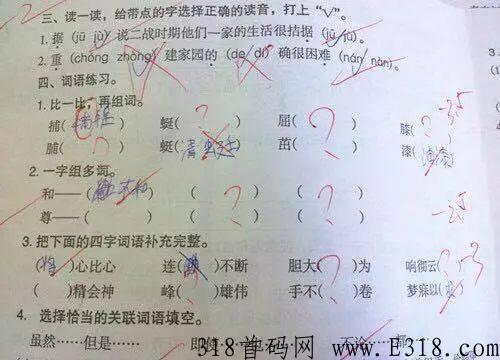 三、读一读，给带点的字选择正确的读音，打上“√”。
1. 据(jū jù)说二战时期他们一家的生活很拮据(jū jù)。
2. 重(chóng zhòng)建家园的(de dí)确很困难(nán nàn)。
四、词语练习。
1. 比一比，再组词。
捕( ) 蜓( ) 屈( ) 膝( )
脯( ) 蜓( ) 茁( ) 漆(油漆)
2. 一字组多词。
和——( ) ( ) ( )
尊——( ) ( ) ( )
3. 把下面的四字词语补充完整。
(将)心比心 连( )不断 胆大( )为 响彻云( )
( )精会神 峰( )雄伟 手不( )卷 梦寐以( )
4. 选择恰当的关联词语填空。
虽然……但是…… 即使 不论 都
318首码网 www.E318.com